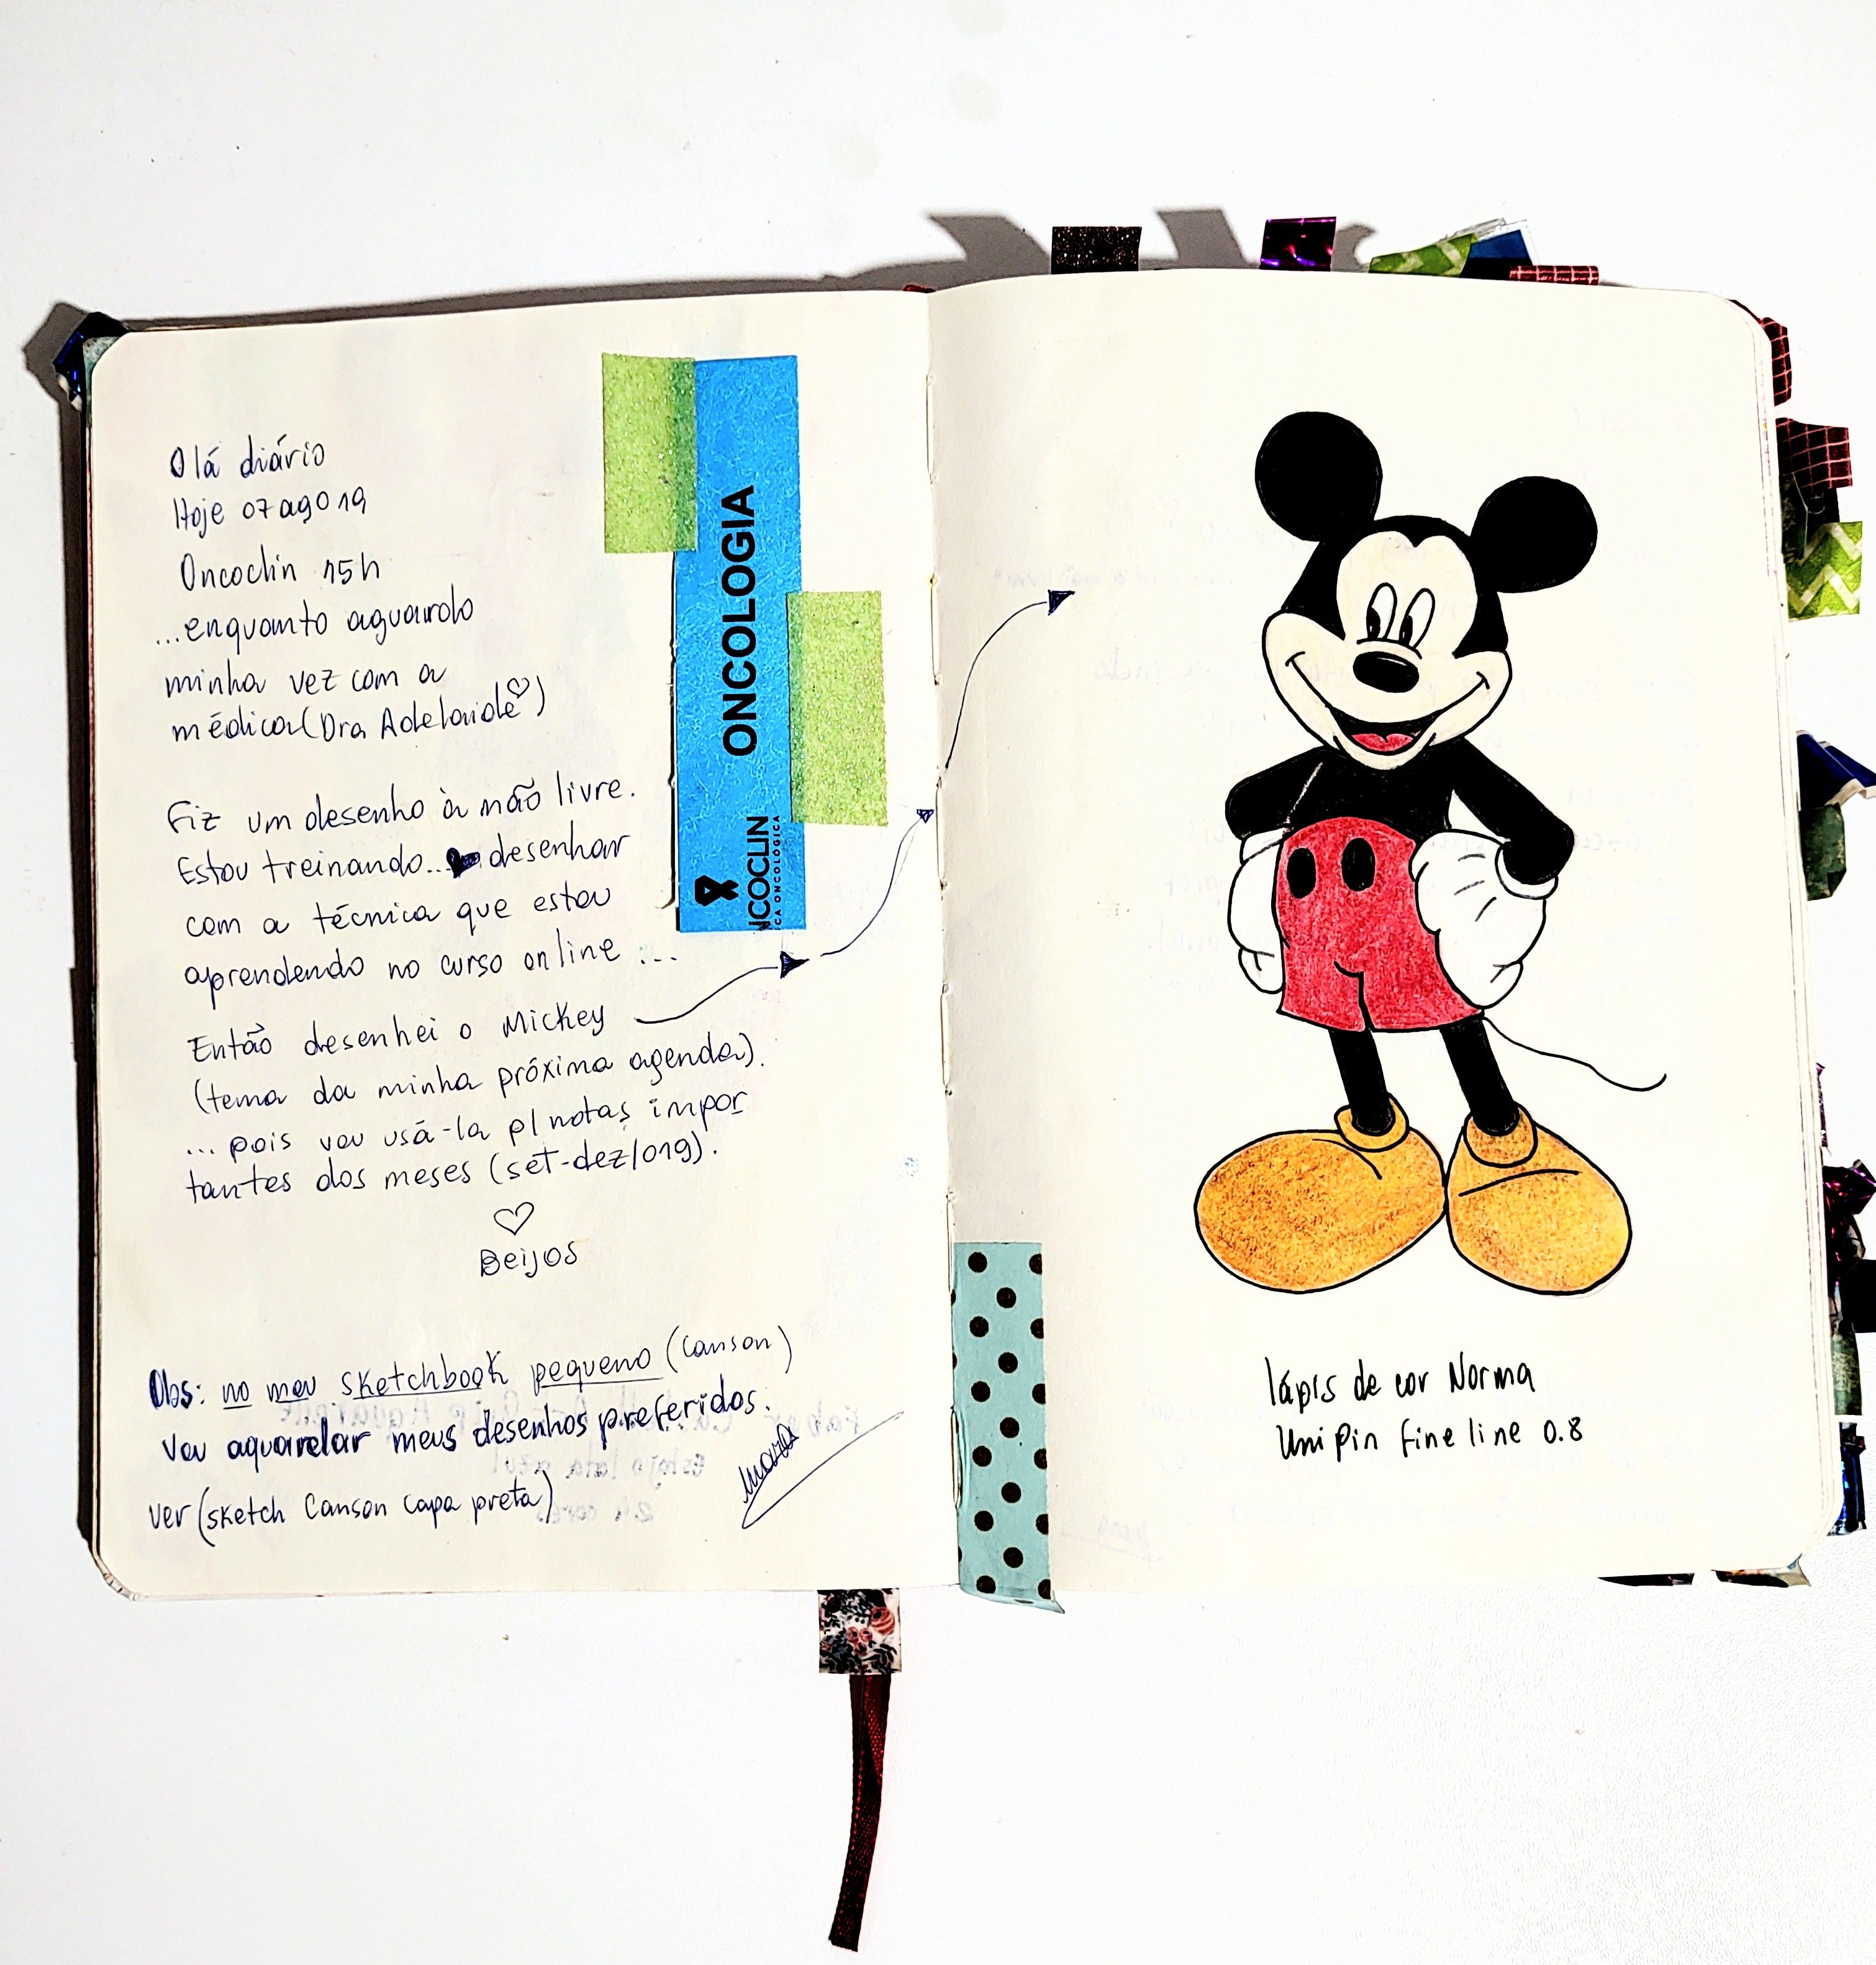 Olá diário
Hoje 07 ago 019
Oncoclin 15h
...enquanto aguardo
minha vez com a
médica (Dra Adelaide)
Fiz um desenho à mão livre.
Estou treinando... desenhar
com a técnica que estou
aprendendo no curso online ...
Então desenhei o Mickey
(tema da minha próxima agenda).
... pois vou usá-la p/ notas impor
tantes dos meses (set-dez/019).
Beijos
Obs: no meu sketchbook pequeno (Canson)
vou aquarelar meus desenhos preferidos.
ver (sketch Canson capa preta)
ONCOLOGIA
NCOCLIN
CA ONCOLÓGICA
lápis de cor Norma
Uni Pin fine line 0.8